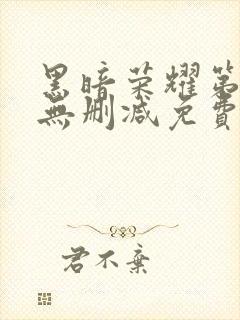 黑暗荣耀第
無删减免費
君不棄